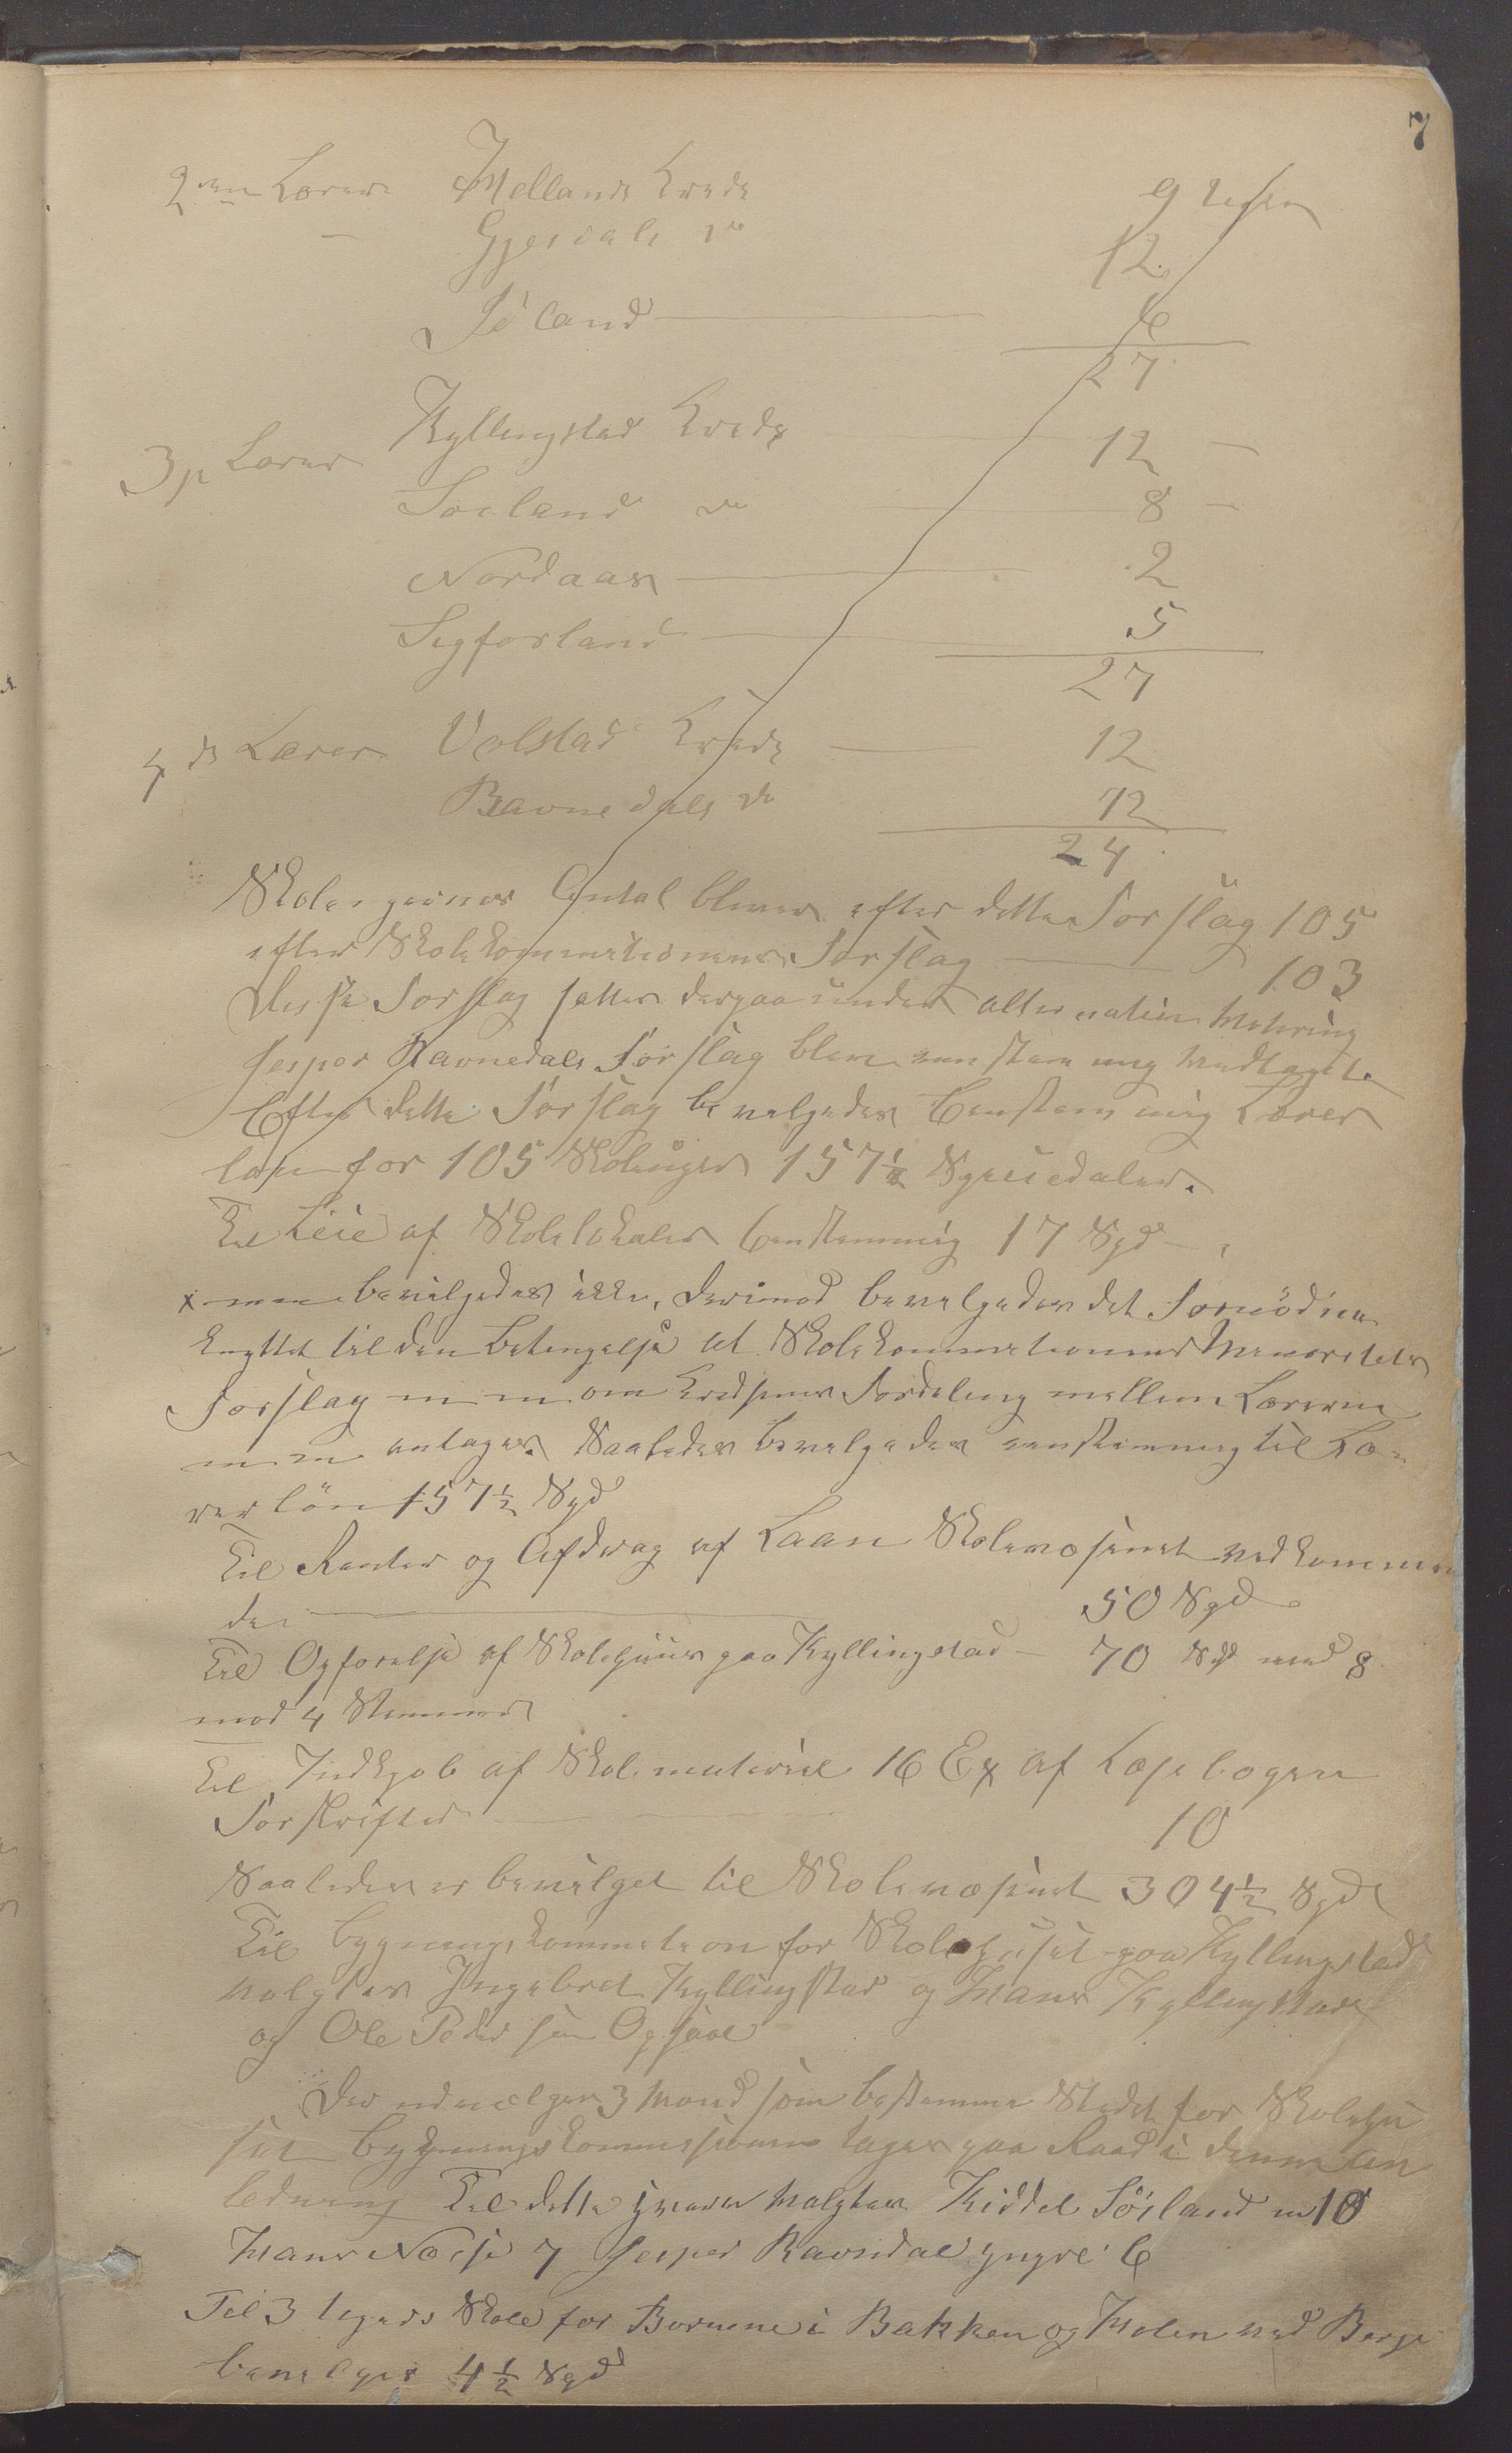 7
2den Lærer Mellands Kreds 9 Uger
Gjesdals do 12
Söiland 6
27
3je Lærer Kyllingstad Kreds 12
Sörland do 8
Nordaas 2
Sigforland 5
27
4de Lærer Volstad Kreds 12
Ravnedals do 12
24
Skoleugernes Antal bliver efter dette Forslag 105
efter Skolekommitionens Forslag 103
Disse Forslag sattes derpaa under alternativ Votering
Jesper Ravnedals Forslag blev eenstemmig vedtaget.
Efter dette Forslag bevilgedes Eenstemmig Lærer
løn for 105 Skoleuger 157½ Speciedaler.
Til Leie af Skolelokaler Eenstemmig 17 Spd
x bevilgedes ikke, derimod bevilgedes det Fornödne
knyttet til den Betingelse at Skolekommitionens Menoritets
Forslag om Kredsenes Fordeling mellem Lærerne
antages. Saaledes bevilgedes eenstemmig til Læ-
rerlön 157½ Spd
Til Renter og Afdrag af Laan Skolevæsenet vedkommen
de 50 Spd
Til Opførelse af Skolehuus paa Kyllingstad 70 Spd med 8
mod 4 Stemmer
Til Indkjøb af Skolemateriel 16 Ex af Læsebogen
Forskrifter 10
Saaledes er bevilget til Skolevæsenet 304½ Spd
Til bygningskommition for Skolehuset paa Kyllingstad
valgtes Ingebret Kyllingstad og Hans Kyllingstad
og Ole Pedersen Opsal
Der udvælges 3 Mænd som bestemme Stedet for Skolehu
set bygningskommissionen tages paa Raad i denne An
ledning Til dette hverv valgtes Kiddel Söiland m 10
Hans Næse 7 Jesper Ravndal yngre 6
Til 3 Ugers Skole for Børnene i Bakken og Molen ved Berge
bevilges 4½ Spd